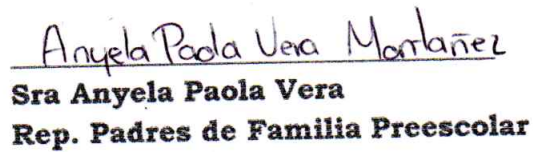 Anyela Paola Vera Montañez
Sra Anyela Paola Vera
Rep. Padres de Familia Preescolar